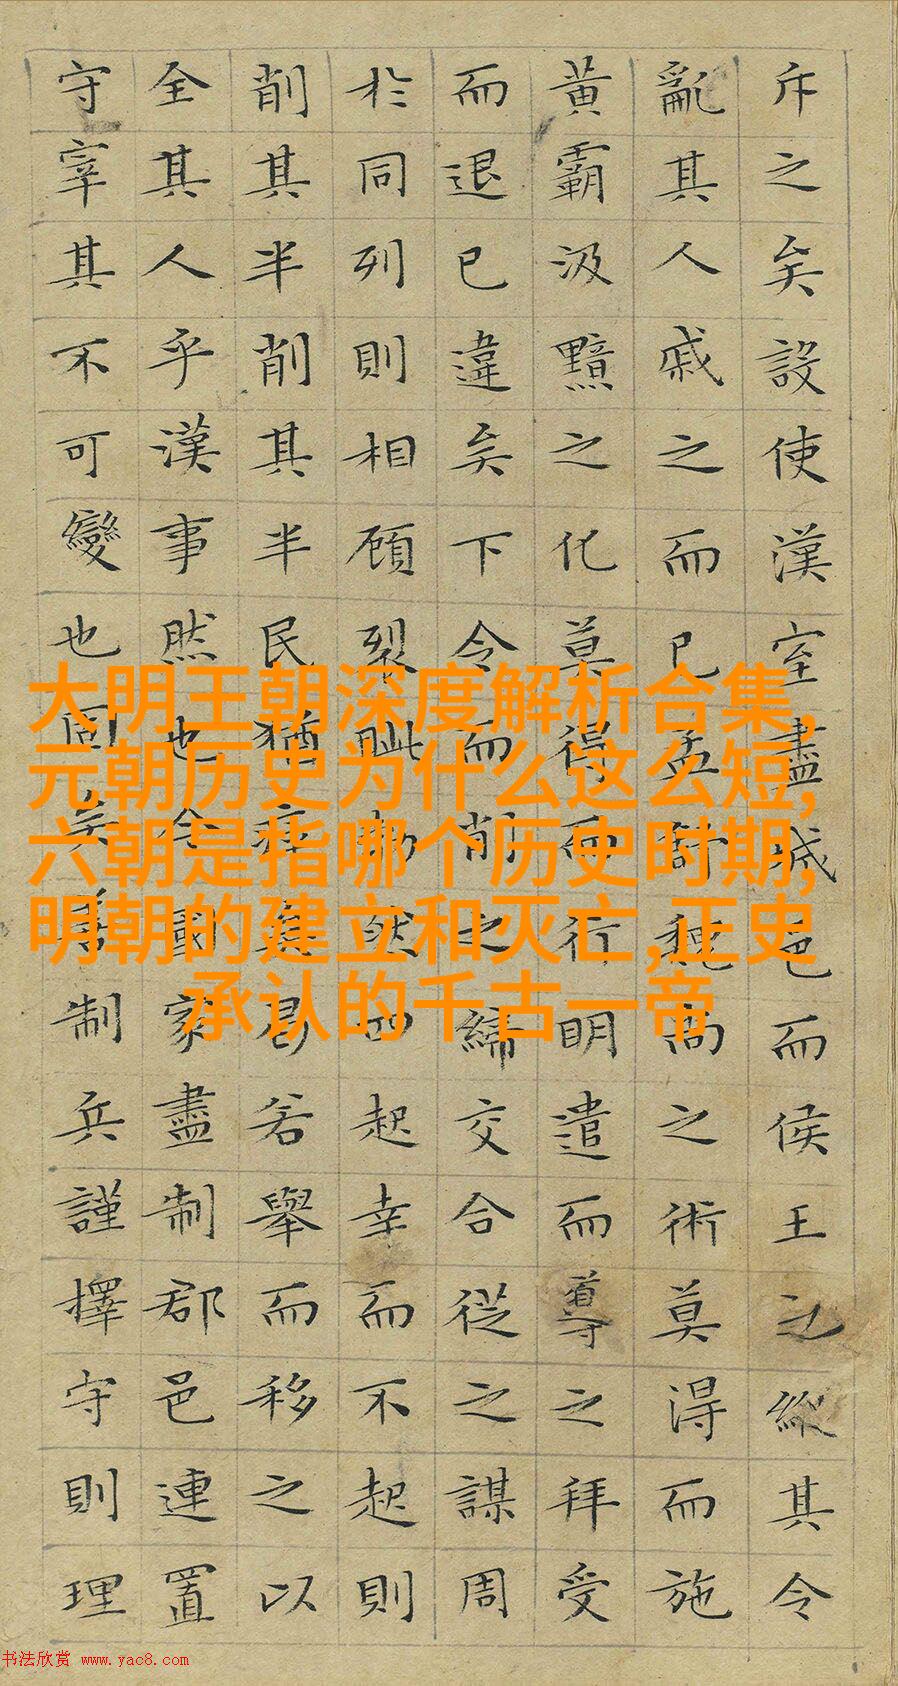 斥之矣設使漢室盡城邑而侯王之縱其令
亂其人戚之而已孟舒魏尚之術莫得而施
黃霸汲黯之化莫得而行明遣而導之拜受
而退已違矣下令而削之締交合從之謀周
於同列則相顧裂眥勃然而起幸而不起則
削其半削其半民猶瘁矣曷若舉而移之以
全其人乎漢事然也今國家盡制郡邑連置
守宰其不可變也固矣善制兵謹擇守則理
大明王朝深度解析合集,
元朝历史为什么这么短,
六朝是指哪个历史时期,
明朝的建立和灭亡,正史
承认的千古一帝
书法欣赏 www.yac8.com